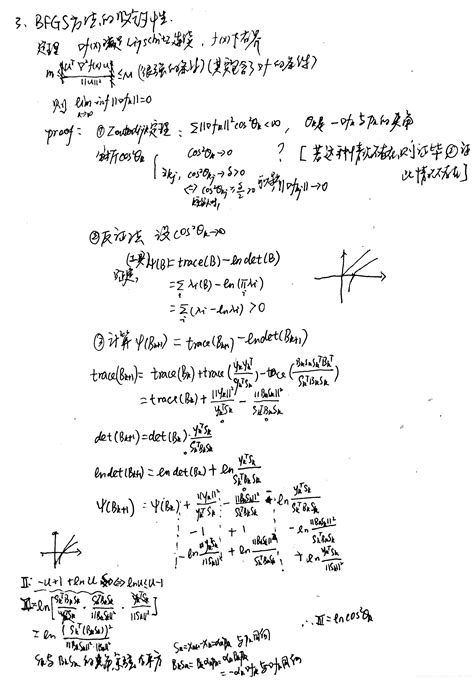 3、BFGS方法的收敛性.
定理 ∇f(x)满足Lipschitz连续, f(x)下有界
m ≤ uᵀ∇²f(x)u / ||u||² ≤ M (很强的条件) (其实包含了∇f的条件)
则 lim inf ||∇fk|| = 0
k→∞
proof: ① Zoutendijk定理: Σ||∇fk||²cos²θk < ∞, θk是 -∇fk与pk的夹角
分析cos²θk { cos²θk→0 ? [若这种情况不存在,则证毕 ②证
∃kj, cos²θkj → δ>0 此情况不存在]
<=> cos²θkj ≥ δ/2 >0 ||∇fkj||→0
②反证法 设cos²θk→0
(工具) ψ(B) = trace(B) - ln det(B)
= Σi λi(B) - ln(∏i λi)
= Σi (λi - lnλi) > 0
③计算 ψ(Bk+1) = trace(Bk+1) - ln det(Bk+1)
trace(Bk+1) = trace(Bk) + trace(ykykᵀ / ykᵀsk) - trace(BkskskᵀBkᵀ / skᵀBksk)
= trace(Bk) + ||yk||² / ykᵀsk - ||Bksk||² / skᵀBksk
det(Bk+1) = det(Bk) · ykᵀsk / skᵀBksk
ln det(Bk+1) = ln det(Bk) + ln ykᵀsk / skᵀBksk
ψ(Bk+1) = ψ(Bk) + ||yk||² / ykᵀsk - ||Bksk||² / skᵀBksk - ln ykᵀsk / skᵀBksk
-1 +1 - ln ||Bksk||² / skᵀBksk
- ln ykᵀsk / ||sk||² + ln ||Bksk||² / skᵀBksk + ln ykᵀsk / ||sk||²
Ⅱ: -u+1+ln u ≤0 <=> ln u ≤ u-1
Ⅲ = ln[skᵀBksk / ykᵀsk · skᵀBksk / ||Bksk||² · ykᵀsk / ||sk||²]
= ln { (skᵀ(Bksk))² / ||Bksk||²·||sk||² } ∴ Ⅲ = ln cos²θk
sk与Bksk的夹角余弦的平方
sk = xk+1 - xk = αkpk 与pk同向
Bksk = Bkαkpk = αkBkpk
= -αk∇fk 与-∇fk同向